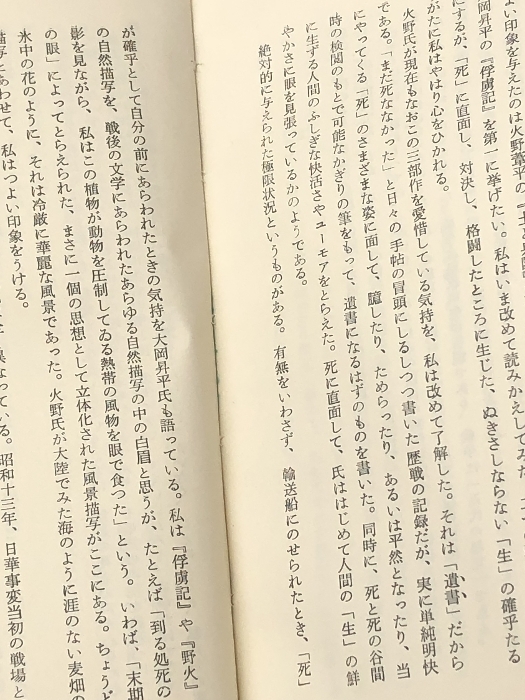 よい印象を与えたのは火野葦平の『土と兵隊』
大岡昇平の『俘虜記』を第一に挙げたい。私はいま改めて読みかえしてみた
にするが、「死」に直面し、対決し、格闘したところに生じた、ぬきさしならない「生」の確乎たる
がたに私はやはり心をひかれる。
火野氏が現在もなおこの三部作を愛惜している気持を、私は改めて了解した。それは「遺書」だから
である。「まだ死ななかった」と日々の手帖の冒頭にしるしつつ書いた歴戦の記録だが、実に単純明快
にやってくる「死」のさまざまな姿に面して、臆したり、ためらったり、あるいは平然となったり、当
時の検閲のもとで可能なかぎりの筆をもって、遺書になるはずのものを書いた。同時に、死と死の谷間
に生ずる人間のふしぎな快活さやユーモアをとらえた。死に直面して、氏ははじめて人間の「生」の鮮
やかさに眼を見張っているかのようである。
絶対的に与えられた極限状況というものがある。有無をいわさず、輸送船にのせられたとき、「死」
が確乎として自分の前にあらわれたときの気持を大岡昇平氏も語っている。私は『俘虜記』や『野火』
の自然描写を、戦後の文学にあらわれたあらゆる自然描写の中の白眉と思うが、たとえば「到る処死の
影を見ながら、私はこの植物が動物を圧制してゐる熱帯の風物を眼で食つた」という。いわば、「末期
の眼」によってとらえられた、まさに一個の思想として立体化された風景描写がここにある。ちょうど
氷中の花のように、それは冷厳に華麗な風景であった。火野氏が大陸でみた海のように涯のない麦畑の
描写とあわせて、私はつよい印象をうける。
異なっている。昭和十三年、日華事変当初の戦場と